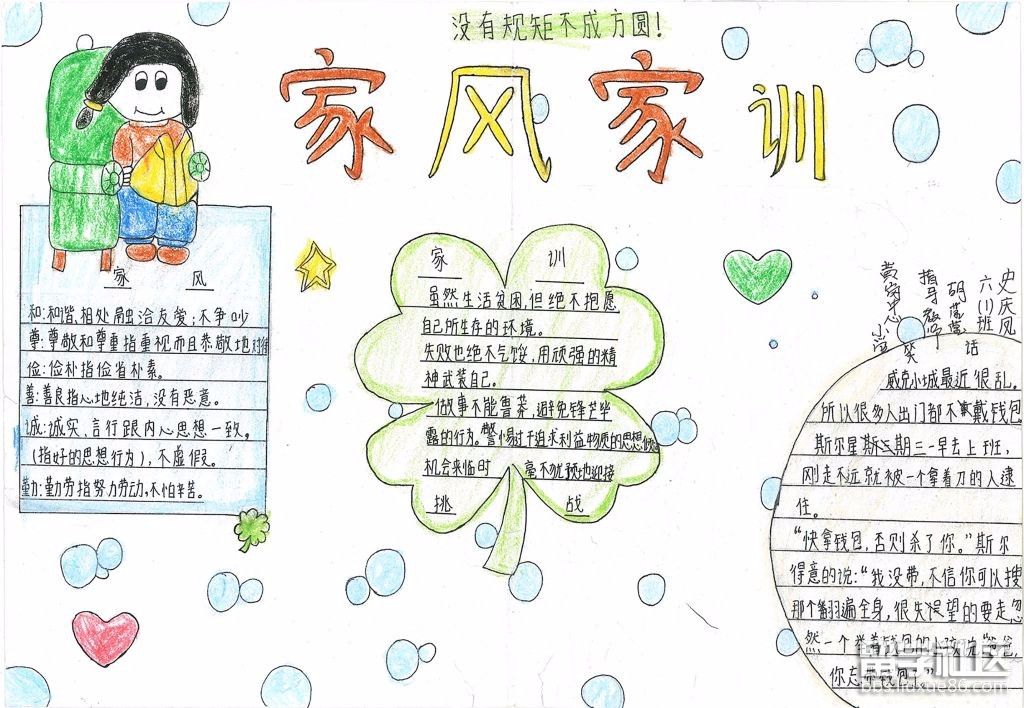 没有规矩不成方圆!
家风家训
家 风
和:和谐,相处融洽友爱;不争吵
尊:尊敬和尊重指重视而且恭敬地对待
俭:俭朴指俭省朴素。
善:善良指心地纯洁,没有恶意。
诚:诚实,言行跟内心思想一致。
(指好的思想行为),不虚假。
勤:勤劳指努力劳动,不怕辛苦。
家 训
虽然生活贫困,但绝不抱愿
自己所生存的环境。
失败也绝不气馁,用顽强的精
神武装自己。
做事不能鲁莽,避免锋芒毕
露的行为。警惕过于追求利益物质的思想
机会来临时 毫不犹预地迎接
挑 战
史庆凤
六(1)班
指导教师
黄岗中心小学
笑 话
威克小城最近很乱。
所以很多人出门都不戴钱包
斯尔星期三一早去上班,
刚走不远就被一个拿着刀的人逮
住。
“快拿钱包,否则杀了你。”斯尔
得意的说:“我没带,不信你可以搜
那个翻遍全身,很失望的要走忽
然一个举着钱包的小孩说爸爸,
你忘带钱包了”
留学社区
bbs.liuxue86.com